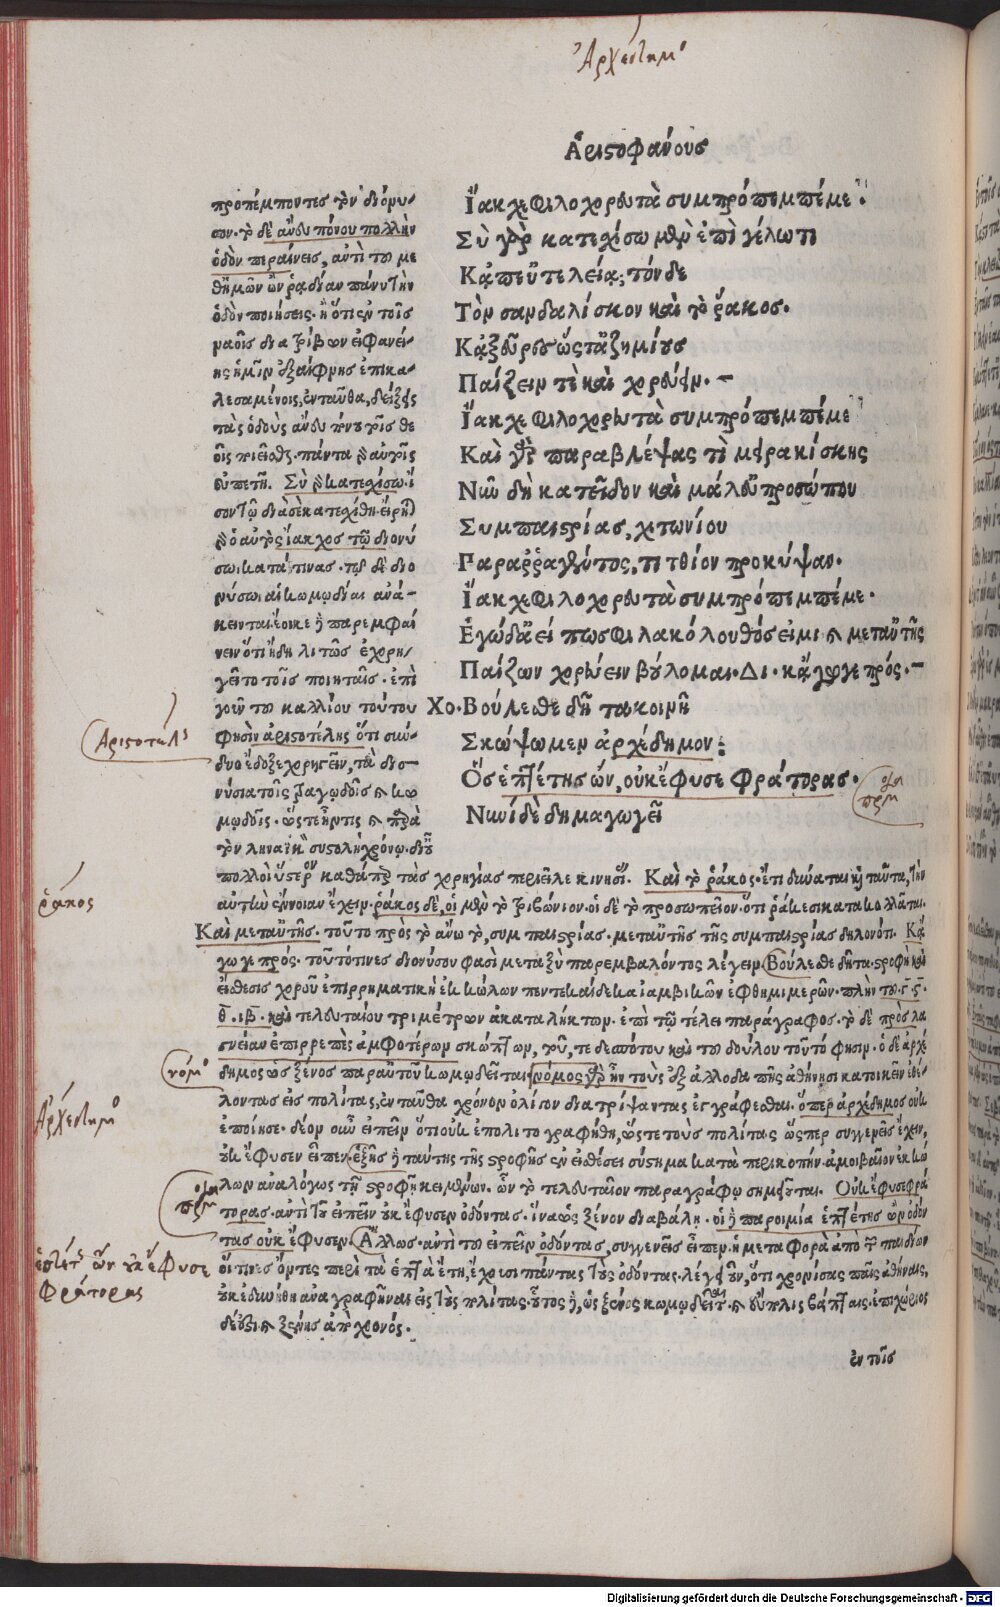 Ἀρχέδημο
Ἀριστοφάνους
Ἴακχε φιλοχορευτὰ συμπρόπεμπέ με
Σὺ γὰρ κατεχίσω μὲν ἐπὶ γέλωτι
Κἀπ' εὐτελείᾳ, τόνδε
Τὸν σανδαλίσκον καὶ τὸ ῥάκος.
Κἀξεῦρες ὥστ' ἀζημίους
Παίζειν τὲ καὶ χορεύειν.
Ἴακχε φιλοχορευτὰ συμπρόπεμπέ με
Καὶ γὰρ παραβλέψας τὶ μειρακίσκης
Νῦν δὴ κατεῖδον καὶ μάλ' εὐπροσώπου
Συμπαιστρίας, χιτωνίου
Παραρραγέντος, τιτθίον προκύψαν.
Ἴακχε φιλοχορευτὰ συμπρόπεμπέ με.
Ἐγὼ δ' ἀεί πως φιλακόλουθός εἰμι καὶ μετ' αὐτῆς
Παίζων χορεύειν βούλομαι. Δι. κἄγωγε πρός.
Χο. Βούλεσθε δῆτα κοινῇ
Σκώψωμεν ἀρχέδημον:
Ὃς ἑπτέτης ὢν, οὐκ ἔφυσε φράτορας.
Νυνὶ δὲ δημαγωγεῖ
προπέμποντες τὸν διόνυ-
σον. τὸ δὲ ἄνευ πόνου πολλὴν
ὁδὸν περαίνεις, ἀντὶ τοῦ με
θ' ἡμῶν ὢν ῥᾳδίαν πάνυ τὴν
ὁδὸν ποιήσεις. ἢ ὅτι ἐν τοῖς
λεσαμένοις, ἐνταῦθα, δείξεις
τὰς ὁδοὺς ἄνευ
εὐπετῆ. Σὺ γὰρ κατεχίσω.
σωι κατά τινας. τῷ δὲ διο
νύσωι αἱ κωμῳδίαι ἀνά-
κεινται. ἔοικε δὲ παρεμφαί
νειν ὅτι ἤδη λιτῶς ἐχορη-
γεῖτο τοῖς ποιηταῖς. ἐπὶ
γοῦν τοῦ καλλίου τούτου
φησὶν ἀριστοτέλης ὅτι σύν-
δυο ἔδοξε χορηγεῖν, τὰ διο-
νύσια τοῖς τραγῳδοῖς καὶ κω
μῳδοῖς. ὥστε ἦν τις καὶ παρὰ
τὸν ληναϊκὸν συστολὴ χρόνῳ δὲ οὐ
πολλῷ ὕστερον καθάπαξ τὰς χορηγίας περιεῖλε κινησίας. Καὶ τὸ ῥάκος. ἔτι δύναται καὶ ταῦτα, τὴν
αὐτὴν ἔννοιαν ἔχειν. ῥάκος δὲ, οἱ μὲν τὸ τριβώνιον. οἱ δὲ τὸ προσωπεῖον. ὅτι ῥάκεσι κατακολλᾶται.
Καὶ μετ' αὐτῆς. τοῦτο πρὸς τὸ ἄνω τὸ, συμπαιστρίας. μετ' αὐτῆς τῆς συμπαιστρίας δηλονότι. Κἄ
γωγε πρός. τοῦτό τινες διόνυσον φασὶ μεταξὺ παρεμβαλόντος λέγειν. Βούλεσθε δῆτα. στροφὴ καὶ
εἴσθεσις χοροῦ ἐπιρρηματικὴ ἐκ κώλων πεντεκαίδεκα ἰαμβικῶν ἑφθημιμερῶν. πλὴν τοῦ. γ. ς.
θ. ιβ. καὶ τελευταίου τριμέτρων ἀκαταλήκτων. ἐπὶ τῷ τέλει παράγραφος. τὸ δὲ πρόσλα
σπείαν ἐπιρρεπὲς ἀμφοτέρων σκώπτων, τοῦ, τε δεσπότου καὶ τοῦ δούλου τοῦτό φησιν. ὁ δὲ ἀρχέ
δημος ὡς ξένος παρ' αὐτοῦ κωμῳδεῖται. νόμος γὰρ ἦν τοὺς ἐξ ἀλλοδαπῆς ἀθήνησι κατοικεῖν ἐθέ-
λοντας εἰς πολίτας, ἐνταῦθα χρόνον ὀλίγον διατρίψαντας ἐγγράφεσθαι. ὅπερ ἀρχέδημος οὐκ
ἐποίησε. δέον οὖν εἰπεῖν ὅτι οὐκ ἐπολιτογραφήθη, ὥστε τοὺς πολίτας ὥσπερ συγγενεῖς ἔχειν,
οὐκ ἔφυσεν εἶπεν. ἑξῆς δὲ ταύτης τῆς στροφῆς ἐν εἰσθέσει σύστημα κατὰ περικοπὴν ἀμοιβαῖον ἐκ κώ
λων ἀναλόγως τῇ στροφῇ κειμένων. ὧν τὸ τελευταῖον παραγράφῳ σημειοῦται. Οὐκ ἔφυσε φρά
τορας. ἀντὶ τοῦ εἰπεῖν οὐκ ἔφυσεν ὀδόντας. ἵνα ὡς ξένον διαβάλῃ. οἱ δὲ παροιμία ἑπτέτης ὢν ὀδόν
τας οὐκ ἔφυσεν. Ἄλλως. ἀντὶ τοῦ εἰπεῖν ὀδόντας, συγγενεῖς εἶπεν. ἡ μεταφορὰ ἀπὸ τῶν παιδίων
οἵτινες ὄντες περὶ τὰ ἑπτὰ ἔτη, ἔχουσι πάντας τοὺς ὀδόντας. λέγει οὖν, ὅτι χρονίσας ταῖς ἀθήναις,
οὐκ ἐδυνήθη ἀναγραφῆναι εἰς τοὺς πολίτας. οὗτος δὲ, ὡς ξένος κωμῳδεῖται.
ἐν τοῖς
Ἀριστοτέλης
ῥάκος
νόμο
Ἀρχέδημο
ἑπτέτης ὢν οὐκ ἔφυσε
φράτορας
Digitalisierung gefördert durch die Deutsche Forschungsgemeinschaft - DFG